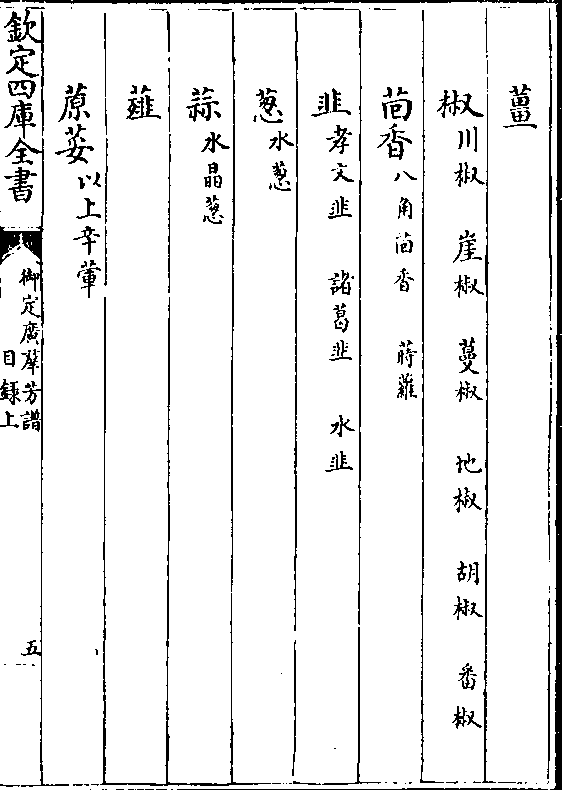 薑
椒 川椒 崖椒 蔓椒 地椒 胡椒 番椒
茴香 八角茴香 蒔蘿
韭 孝文韭 諸葛韭 水韭
葱 水葱
蒜 水晶葱
薤
原荽 以上辛葷
欽定四庫全書
御定廣羣芳譜
目録上
五